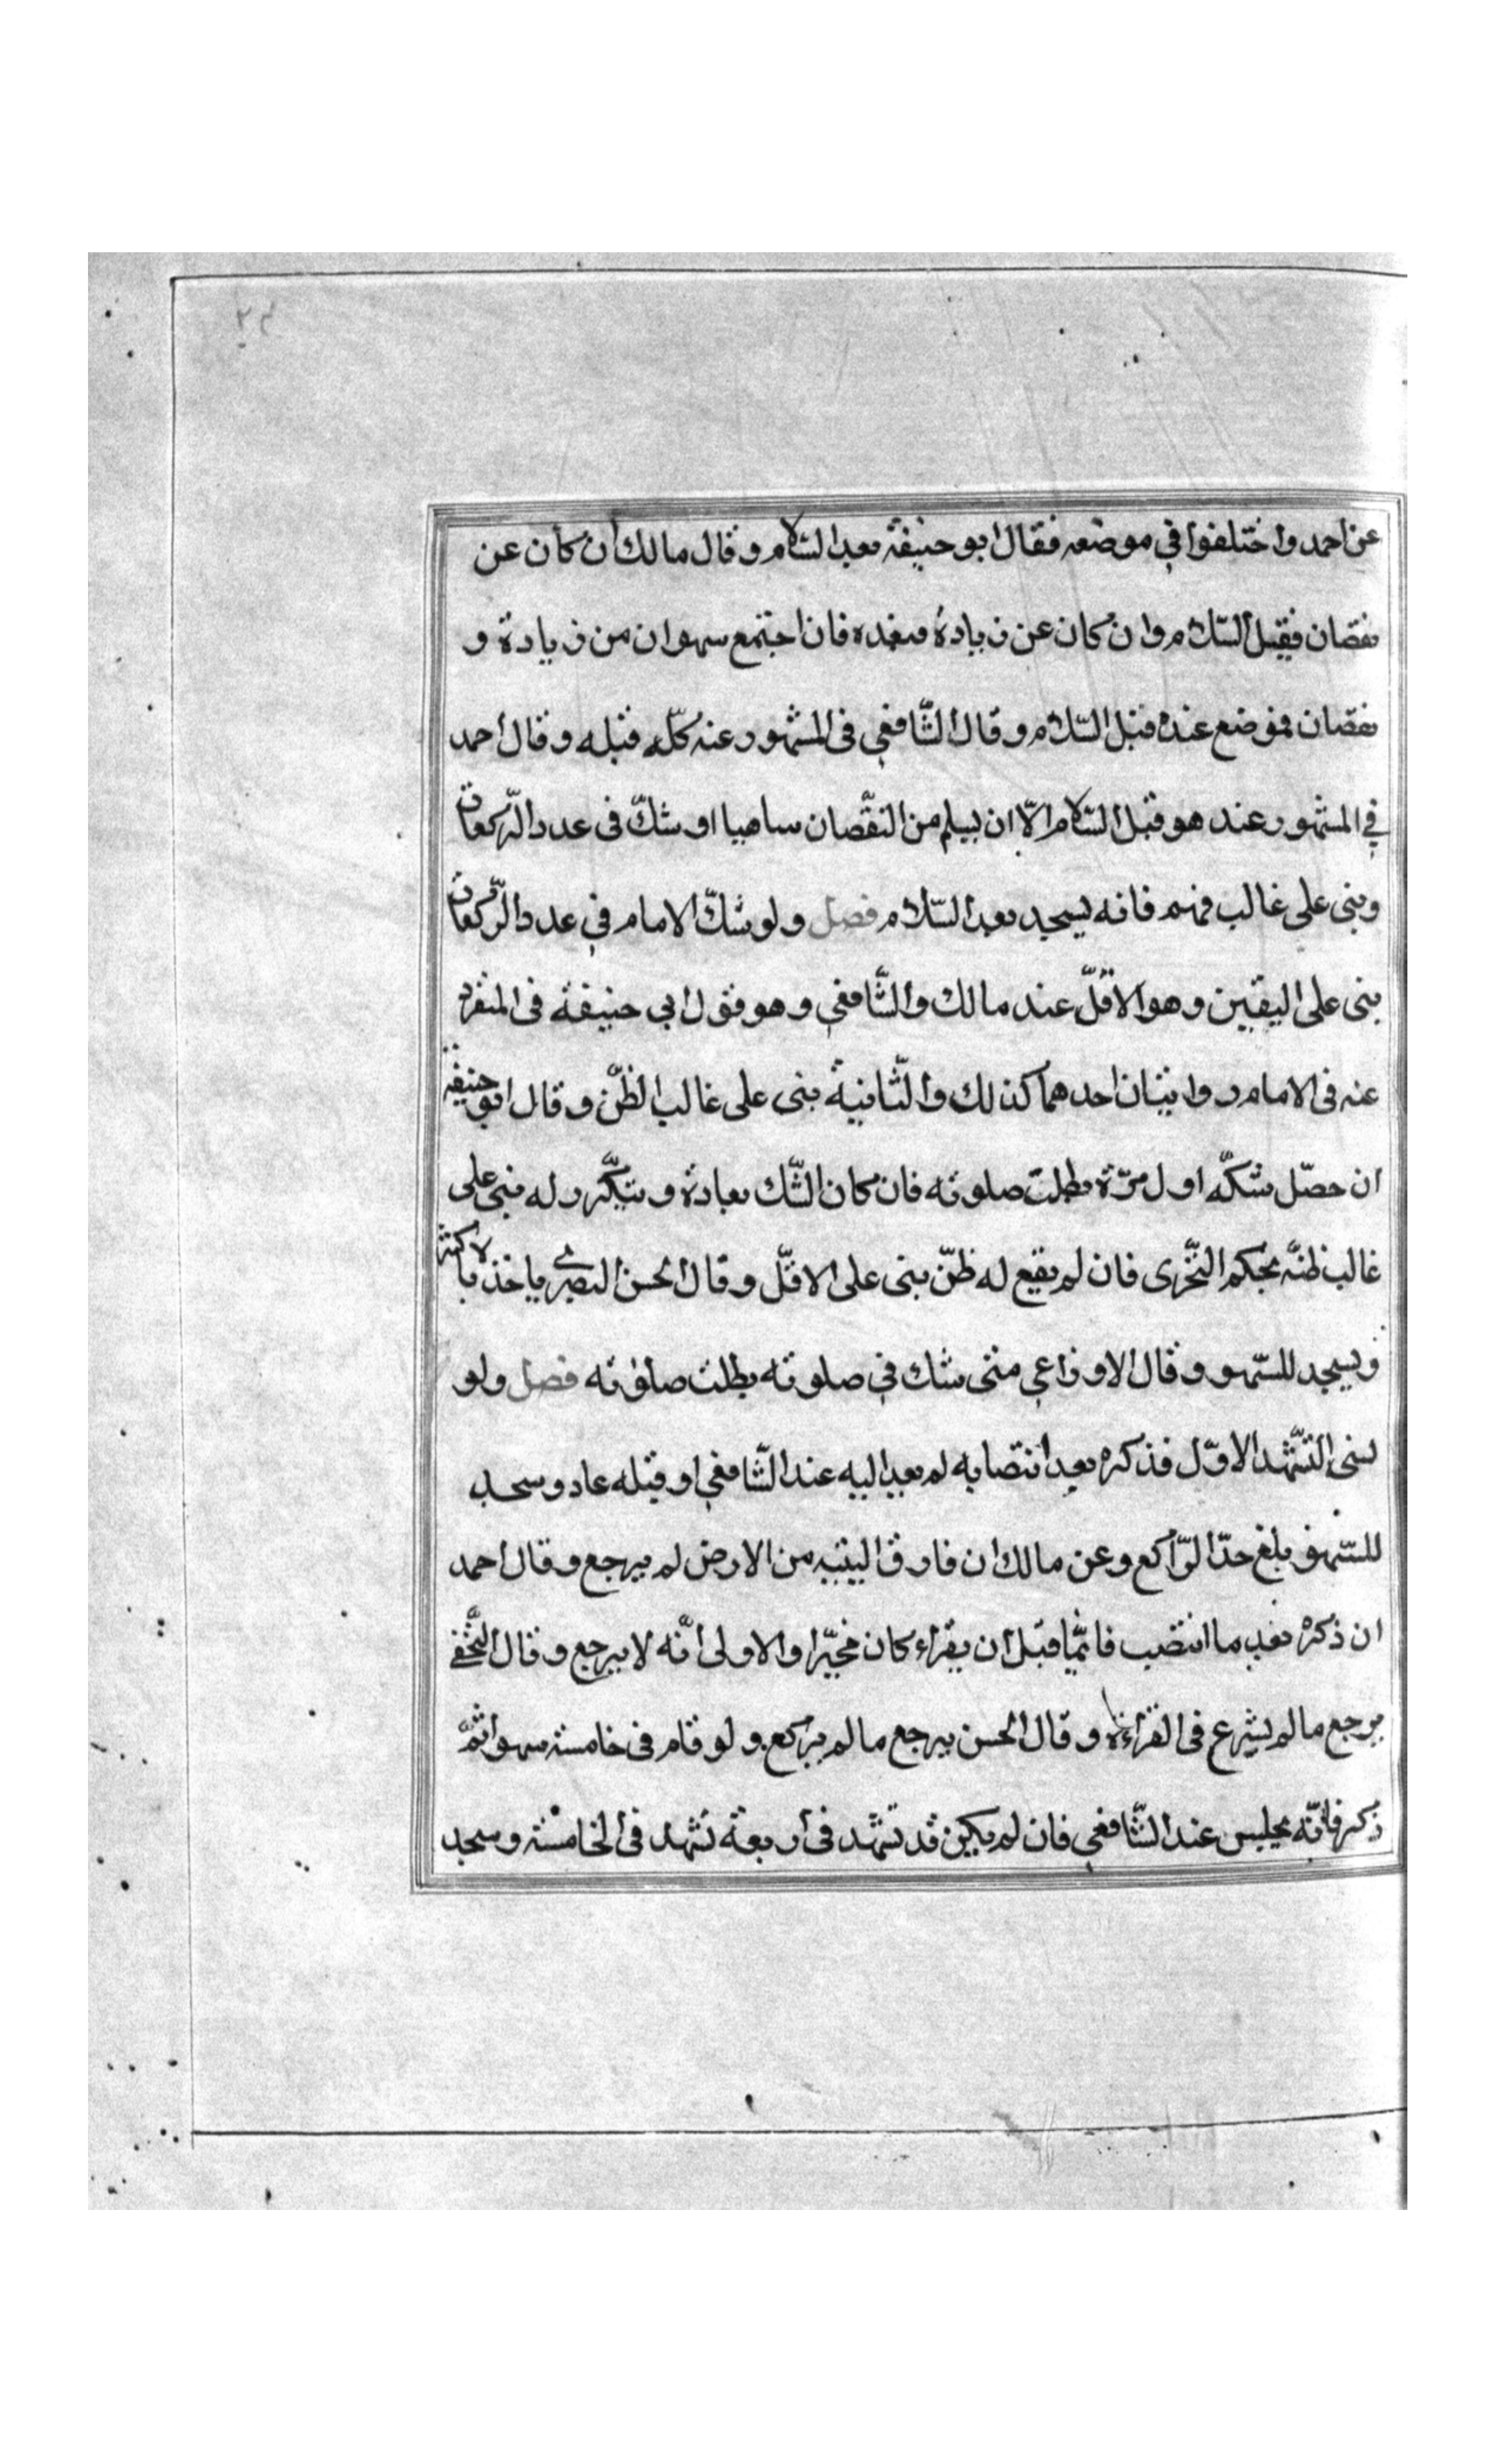 عن احمد واختلفوا في موضعه فقال ابو حنيفة بعد السّلام وقال مالك ان كان عن
نقصان فقبل السّلام وان كان عن زيادة فبعده فان اجتمع سهوان من زيادة و
نقصان فموضع عنده قبل السّلام وقال الشّافعي فى المشهور عنه كلّه قبله وقال احمد
في المشهور عند هو قبل السّلام الّا ان يسلم من النقّصان ساهيا او شكّ فى عدد الرّكعات
وبنى على غالب فهم فانه يسجد بعد السّلام فصل ولو شكّ الامام في عدد الرّكعات
بنى على اليقين وهو الاقلّ عند مالك والشّافعي وهو قول ابي حنيفة فى المنفرد
عنه فى الامام روايتان احدهما كذلك والثّانية بنى على غالب الظّنّ وقال ابو حنيفة
ان حصّل شكّه اول مرّة بطلت صلوته فان كان الشّك بعادة ويتكّرر له بنى على
غالب ظنّه بحكم التّحّرى فان لم يقع له ظنّ بنى على الاقّل وقال الحسن البصري ياخذ بالاكثر
ويسجد للسّهو وقال الاوزاعي متى شك في صلوته بطلت صلوته فصل ولو
نسى التّشّهد الاوّل فذكره بعد انتصابه لم يعد اليه عند الشّافعي او قبله عاد وسجد
للسّهو بلغ حدّ الرّاكع وعن مالك ان فارق اليتيه من الارض لم يرجع وقال احمد
ان ذكره بعد ما انتصب قائمّا قبل ان يقراء كان مخيّرا والاولى انّه لا يرجع وقال النّخعي
يرجع ما لم يشرع فى القراءة وقال الحسن يرجع ما لم يركع ولو قام فى خامسة سهوا ثمّ
ذكر فانّه يجلس عند الشّافعي فان لم يكن قد تشّهد فى اربعة تشهد فى الخامسة وسجد